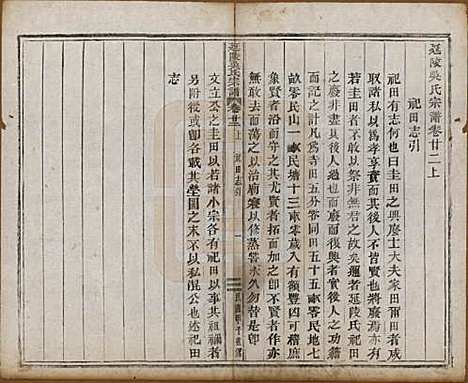 延陵吳氏宗譜卷廿二上
祀田志引
祀田有志何也曰圭田之興慶士大夫家田而
祀之所以爲孝享實而其後人不皆賢也將廢焉亦有
若圭田不敢以祭非無君之之故矣延陵氏祀田
之廢非盡其後人不賢也興者實後人之功藉
而記之計凡爲寺田五分零同田五十五畝零民地七
畝零民山一畝零民塘十三畝零歲入有額豐凶可稽庶
象賢者沿而守之尤賢者拓而加之卽不賢者亦
無敢去而蕩之以治廟寢以修蒸嘗永久勿替是卽
文立公之圭田也若諸小宗各有祀田以事其祖禰者
另附於後載其塋圖之末不以私混公也述祀田
志
延陵吳氏宗譜
卷廿二上
祀田志引
一